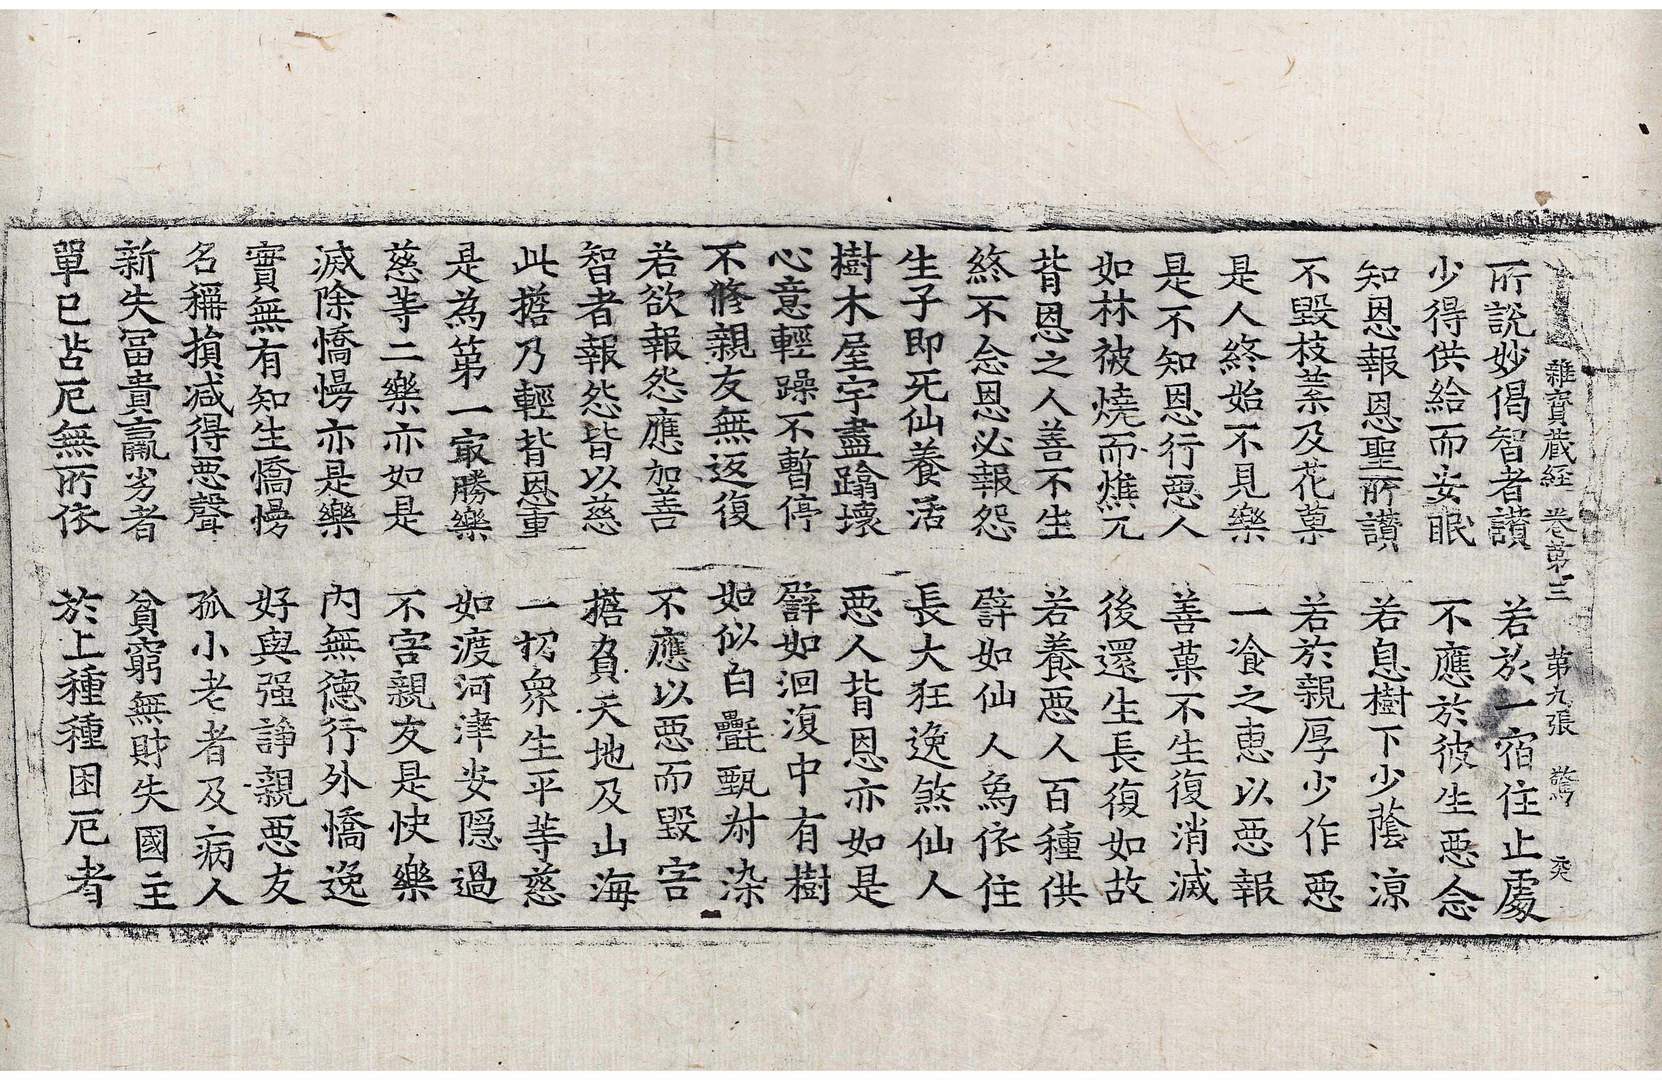 雜寶藏經 卷第三 第九張 驚
所說妙偈智者讚 若於一宿住止處
少得供給而安眠 不應於彼生惡念
知恩報恩聖所讚 若息樹下少蔭涼
不毀枝葉及花菓 若於親厚少作惡
是人終始不見樂 一飡之惠以惡報
是不知恩行惡人 善菓不生復消滅
如林被燒而燋兀 後還生長復如故
背恩之人善不生 若養惡人百種供
終不念恩必報怨 譬如仙人象依住
生子即死仙養活 長大狂逸煞仙人
樹木屋宇盡蹹壞 惡人背恩亦如是
心意輕躁不暫停 譬如洄澓中有樹
不修親友無返復 如似白㲲甄叔染
若欲報怨應加善 不應以惡而毀害
智者報怨皆以慈 擔負天地及山海
此擔乃輕背恩重 一切衆生平等慈
是為第一㝡勝樂 如渡河津安隱過
慈等二樂亦如是 不害親友是快樂
滅除憍慢亦是樂 內無德行外憍逸
實無有知生憍慢 好與强諍親惡友
名稱損減得惡聲 孤小老者及病人
新失冨貴羸劣者 貧窮無財失國主
單己苦厄無所依 於上種種困厄者